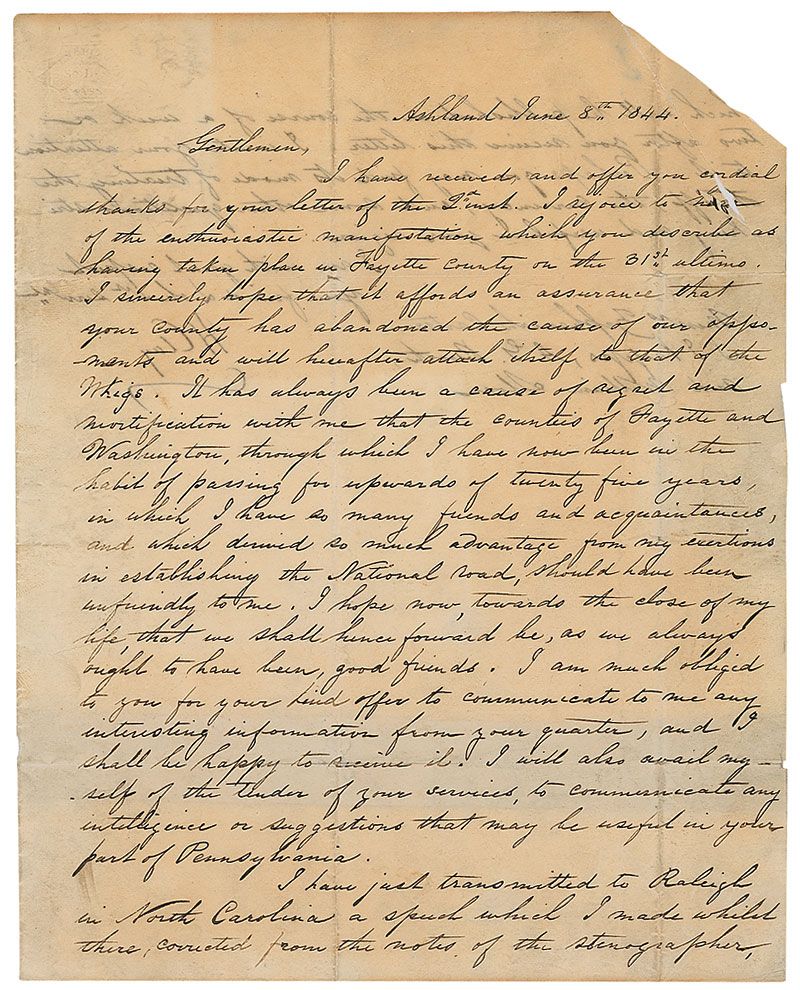 Ashland June 8th 1844.
Gentlemen,
I have received, and offer you cordial
thanks for your letter of the 2d inst. I rejoice to hear
of the enthusiastic manifestation which you describe as
having taken place in Fayette County on the 31st ultimo.
I sincerely hope that it affords an assurance that
your county has abandoned the cause of our oppo-
nents and will hereafter attach itself to that of the
Whigs. It has always been a cause of regret and
mortification with me that the counties of Fayette and
Washington, through which I have now been in the
habit of passing for upwards of twenty five years,
in which I have so many friends and acquaintances,
and which derived so much advantage from my exertions
in establishing the National road, should have been
unfriendly to me. I hope now, towards the close of my
life, that we shall hence forward be, as we always
ought to have been, good friends. I am much obliged
to you for your kind offer to communicate to me any
interesting information from your quarter, and I
shall be happy to receive it. I will also avail my-
self of the tender of your services, to communicate any
intelligence or suggestions that may be useful in your
part of Pennsylvania.
I have just transmitted to Raleigh
in North Carolina a speech which I made whilst
there, corrected from the notes of the stenographer,